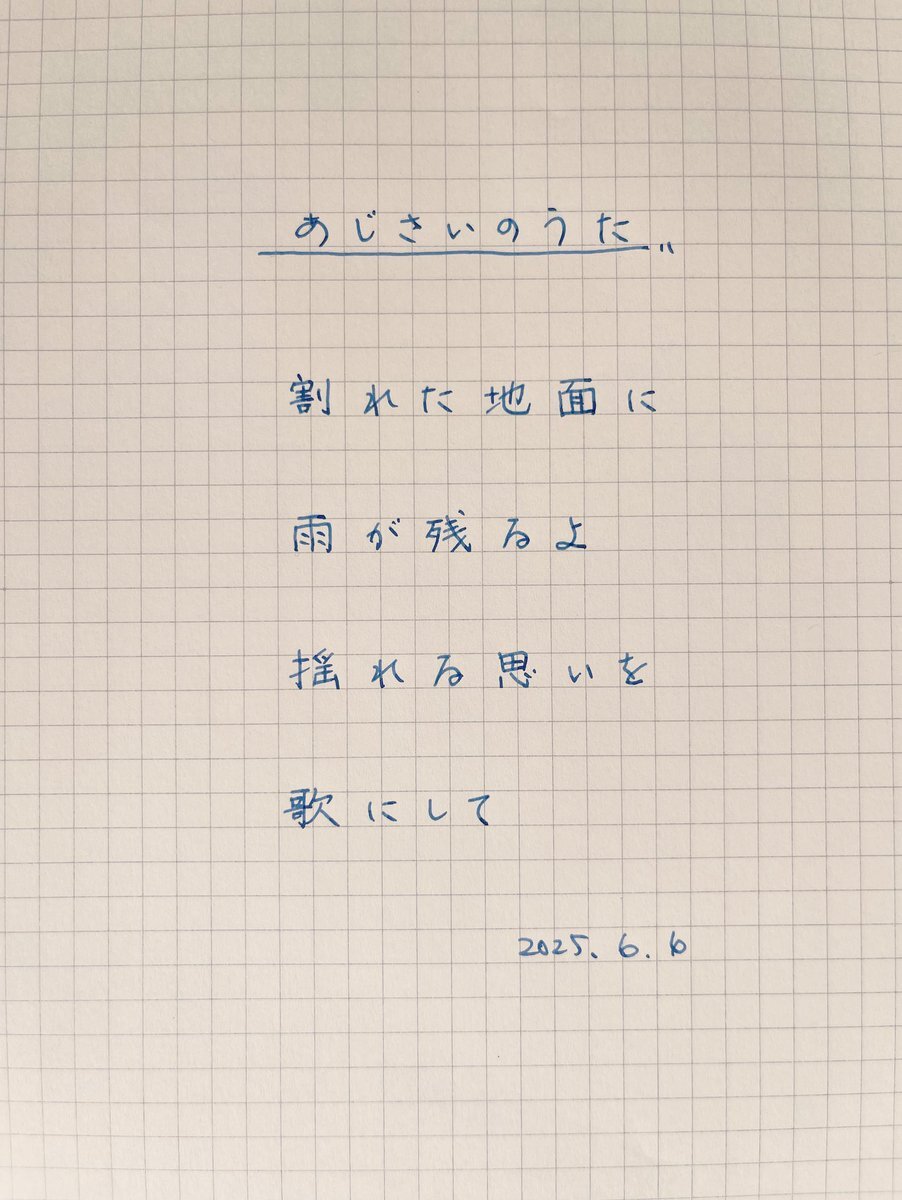 あじさいのうた
割れた地面に
雨が残るよ
揺れる思いを
歌にして
2025.6.6